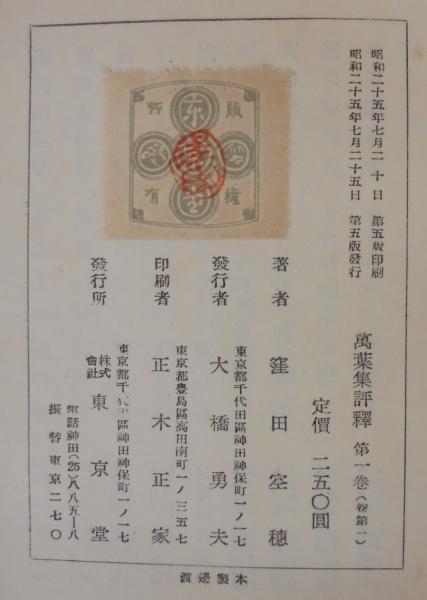 昭和二十五年七月二十日　第五版印刷
昭和二十五年七月二十五日　第五版發行
萬葉集評釋　第一卷（卷第一）
定價　二五〇圓
著者　窪田空穗
東京都千代田區神田神保町一ノ一七
發行者　大橋勇夫
東京都豊島區高田南町一ノ三五七
印刷者　正木正家
東京都千代田區神田神保町一ノ一七
發行所　株式會社　東京堂
電話神田(25)八八五一八
振替東京二七〇
版權
所有
東
渡邊製本